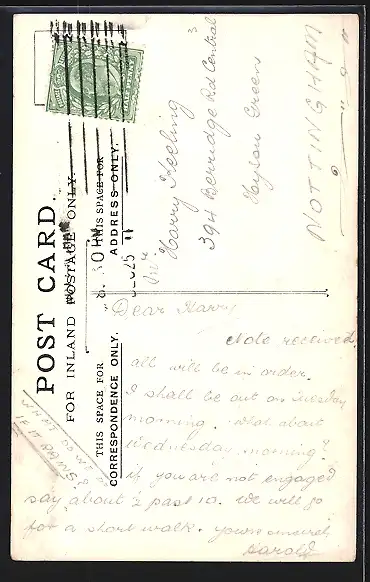 POST CARD.
FOR INLAND POSTAGE ONLY.
THIS SPACE FOR
CORRESPONDENCE ONLY.
THIS SPACE FOR
ADDRESS ONLY.
Mr
Harry Keeling
394 Berridge Rd Central
Hyson Green
NOTTINGHAM
Dear Harry
Note received,
all will be in order.
I shall be out on Tuesday
morning. What about
Wednesday morning?
if you are not engaged
say about ½ past 10. We will go
for a short walk. yours sincerely
Harold
WHAT DON'T
IF IT RAINS?